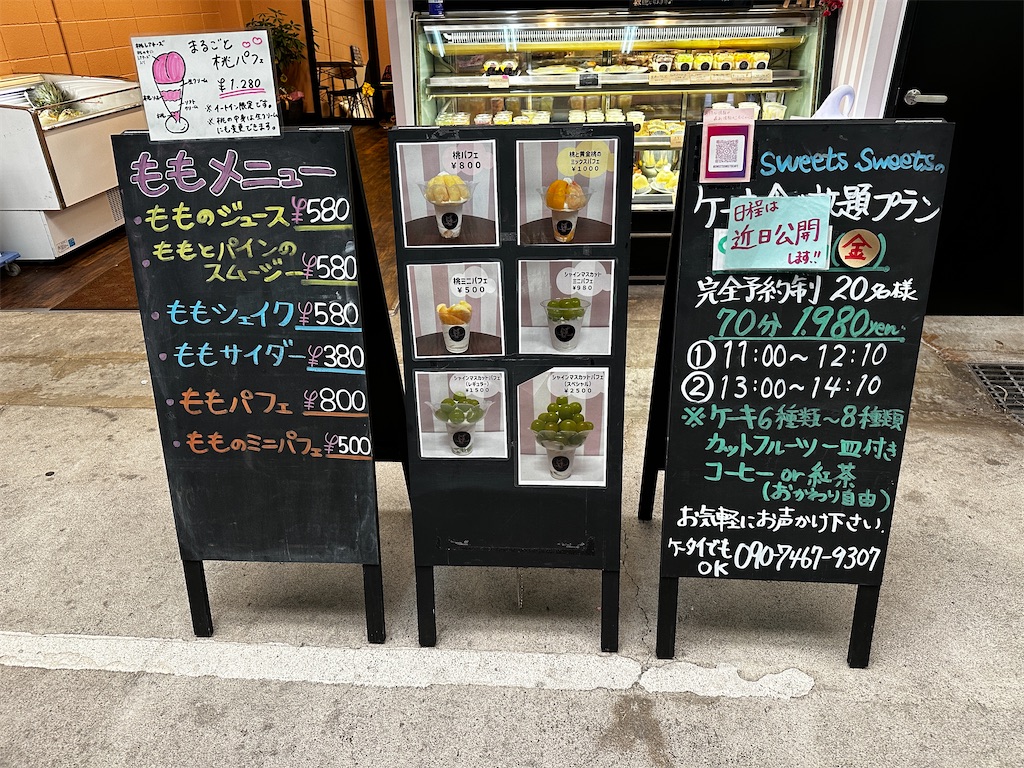 まるごと
桃パフェ
¥1.280
※イートイン限定です。
※桃の中身は生クリーム
にも変更できます。
生クリーム
ソフトクリーム
ももメニュー
・もものジュース ¥580
・ももとパインの
スムージー ¥580
・ももシェイク ¥580
・ももサイダー ¥380
・ももパフェ ¥800
・もものミニパフェ ¥500
桃パフェ
¥800
桃と黄金桃の
ミックスパフェ
¥1000
桃ミニパフェ
¥500
シャインマスカット
ミニパフェ
¥980
シャインマスカットパフェ
(レギュラー)
¥1500
シャインマスカットパフェ
(スペシャル)
¥2500
sweets sweetsの
ケーキ食べ放題プラン
日程は
近日公開
します!!
金
完全予約制 20名様
70分 1.980yen.
① 11:00〜12:10
② 13:00〜14:10
※ケーキ6種類〜8種類
カットフルーツ一皿付き
コーヒー or 紅茶
(おかわり自由)
お気軽にお声かけ下さい.
ケータイでも
OK
090-7467-9307